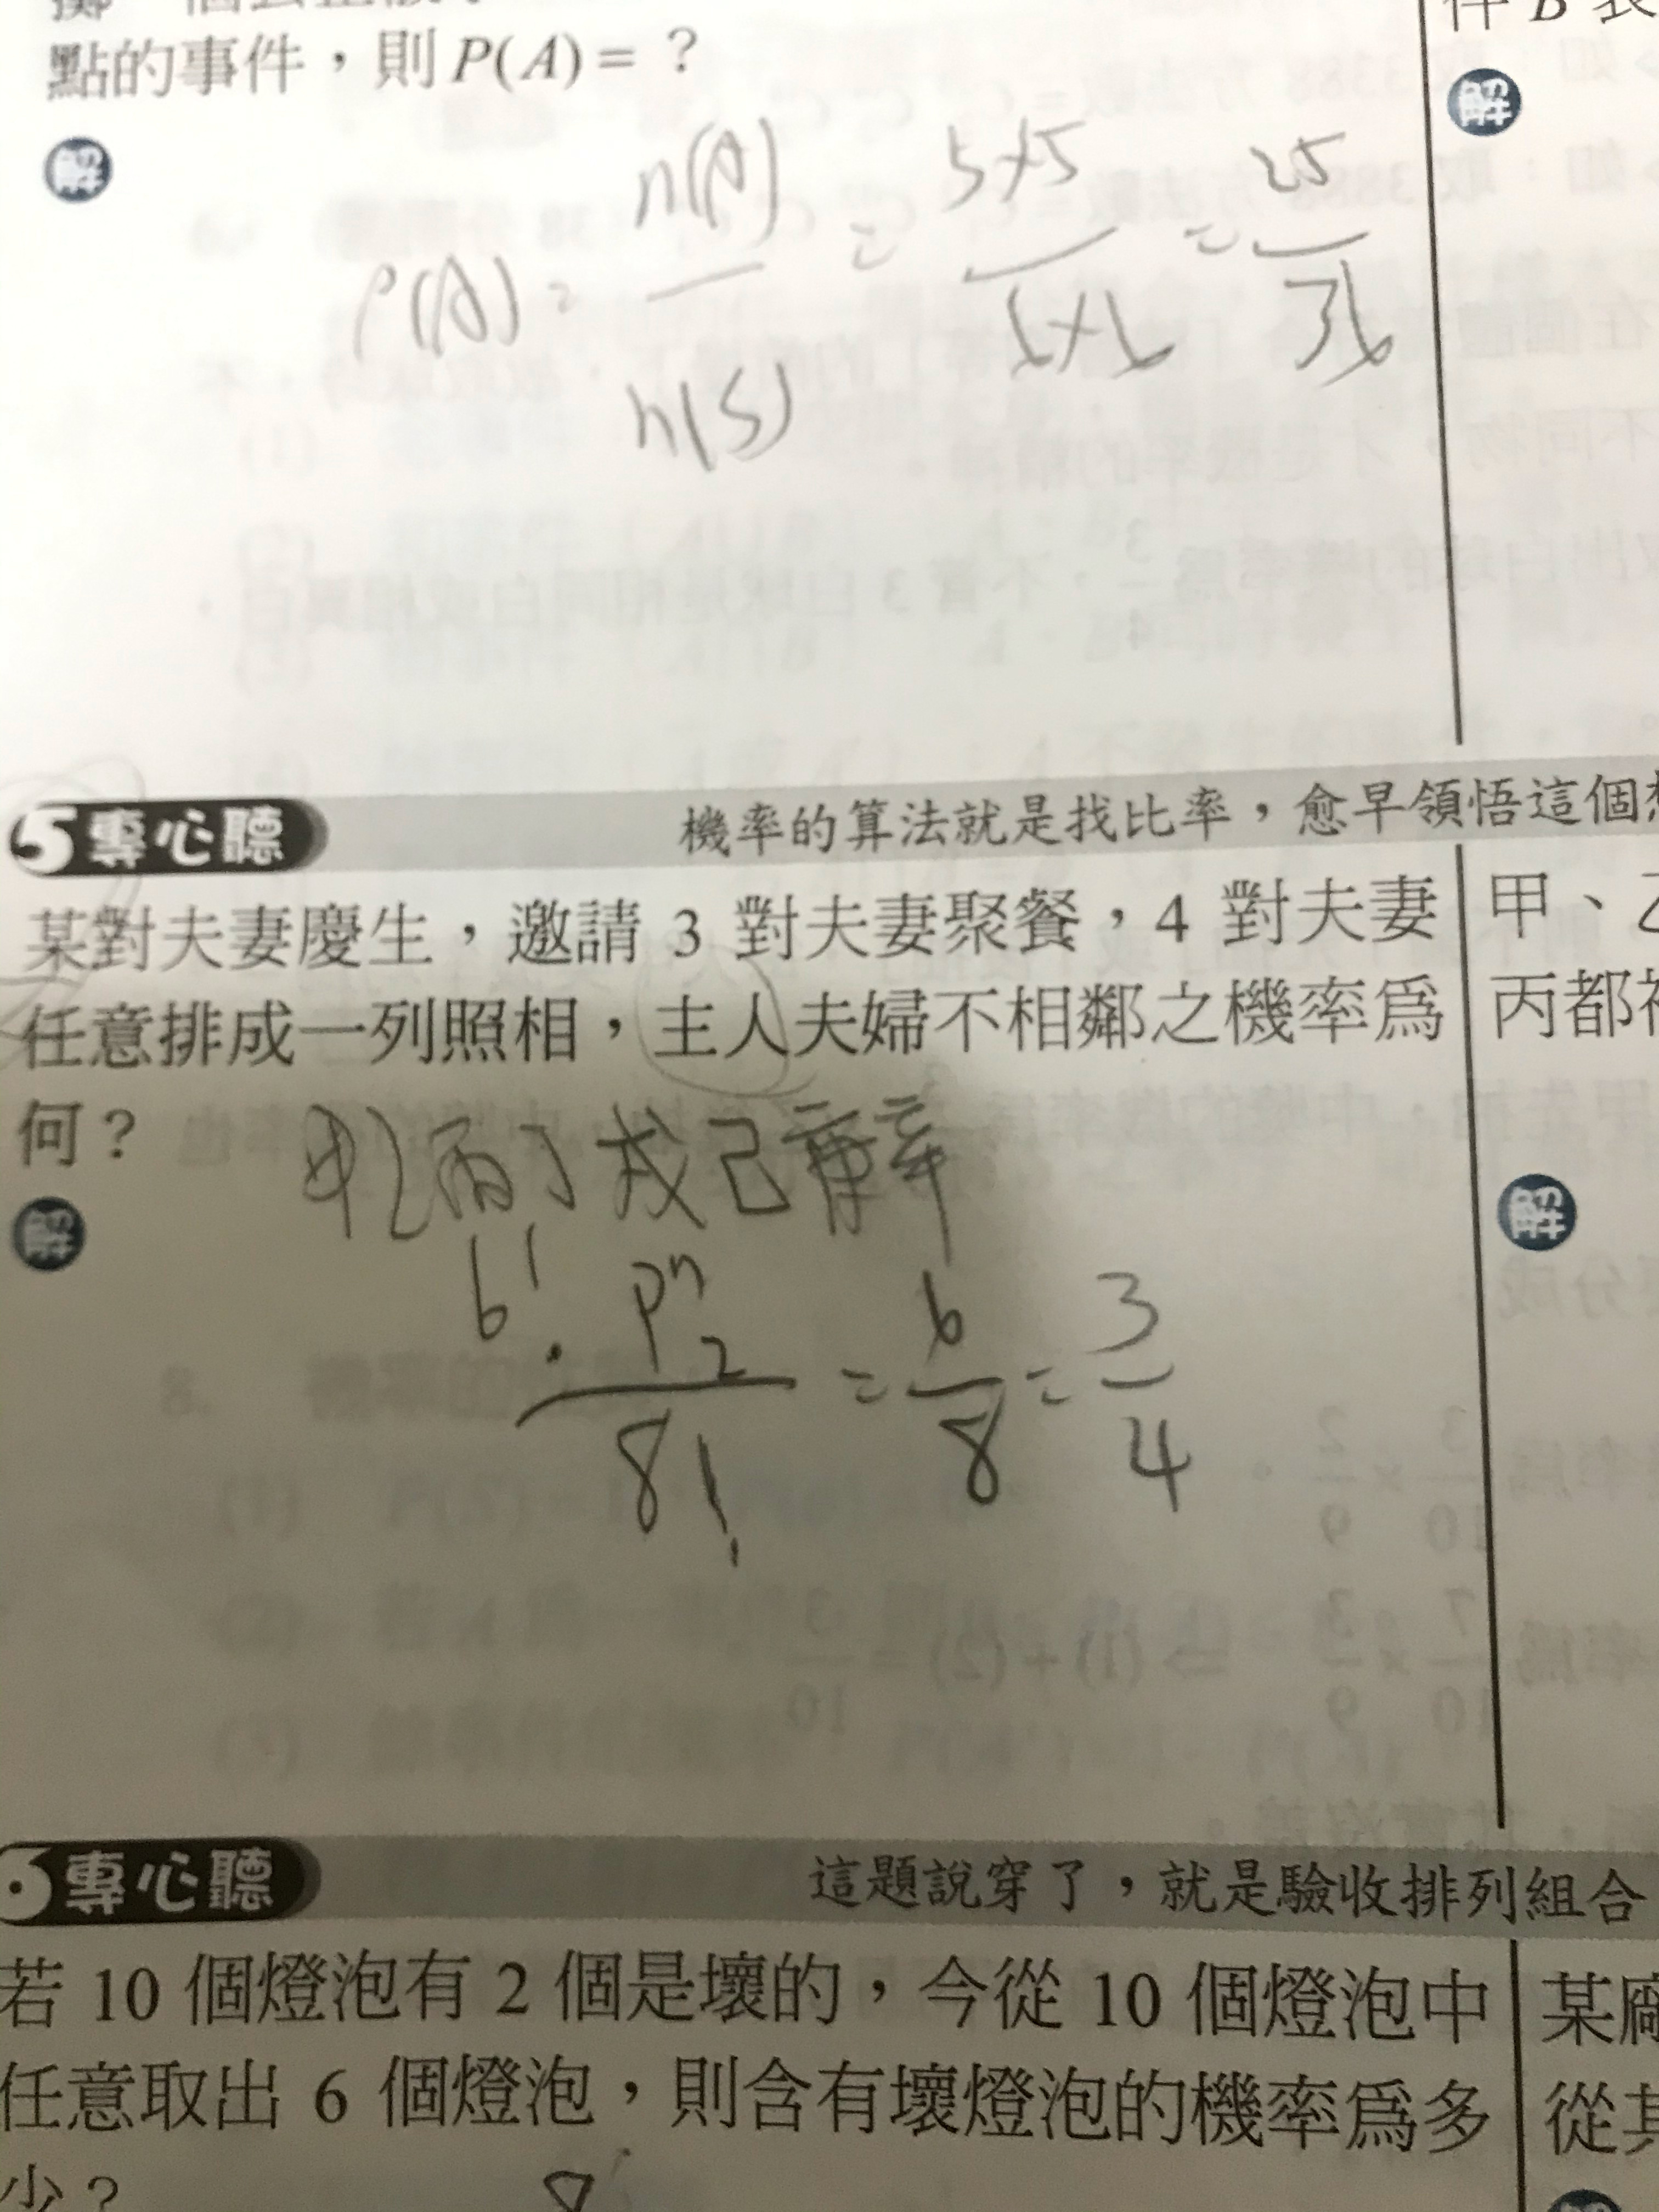 點的事件，則 P(A) = ？
解
P(A) = n(A) / n(S) = 5×5 / 6×6 = 25 / 36
件 B 表
解
5 專心聽
機率的算法就是找比率，愈早領悟這個
某對夫妻慶生，邀請 3 對夫妻聚餐，4 對夫妻
任意排成一列照相，主人夫婦不相鄰之機率為
何？
甲乙丙丁戊己庚辛
解
6! · P 7 2 / 8! = 6 / 8 = 3 / 4
甲、乙
丙都
解
6 專心聽
這題說穿了，就是驗收排列組合
若 10 個燈泡有 2 個是壞的，今從 10 個燈泡中
任意取出 6 個燈泡，則含有壞燈泡的機率為多
少？
某廠
從其